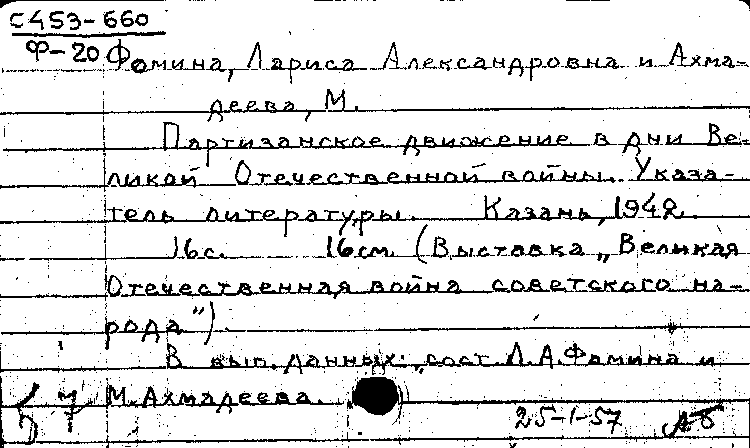 С453-660
Ф-20 Фомина, Лариса Александровна и Ахма-
деева, М.
Партизанское движение в дни Ве-
ликой Отечественной войны. Указа-
тель литературы. Казань, 1942.
16с. 16см. (Выставка „Великая
Отечественная война советского на-
рода").
В вып. данных: „сост. Л.А.Фомина и
М. Ахмадеева.
25-1-57